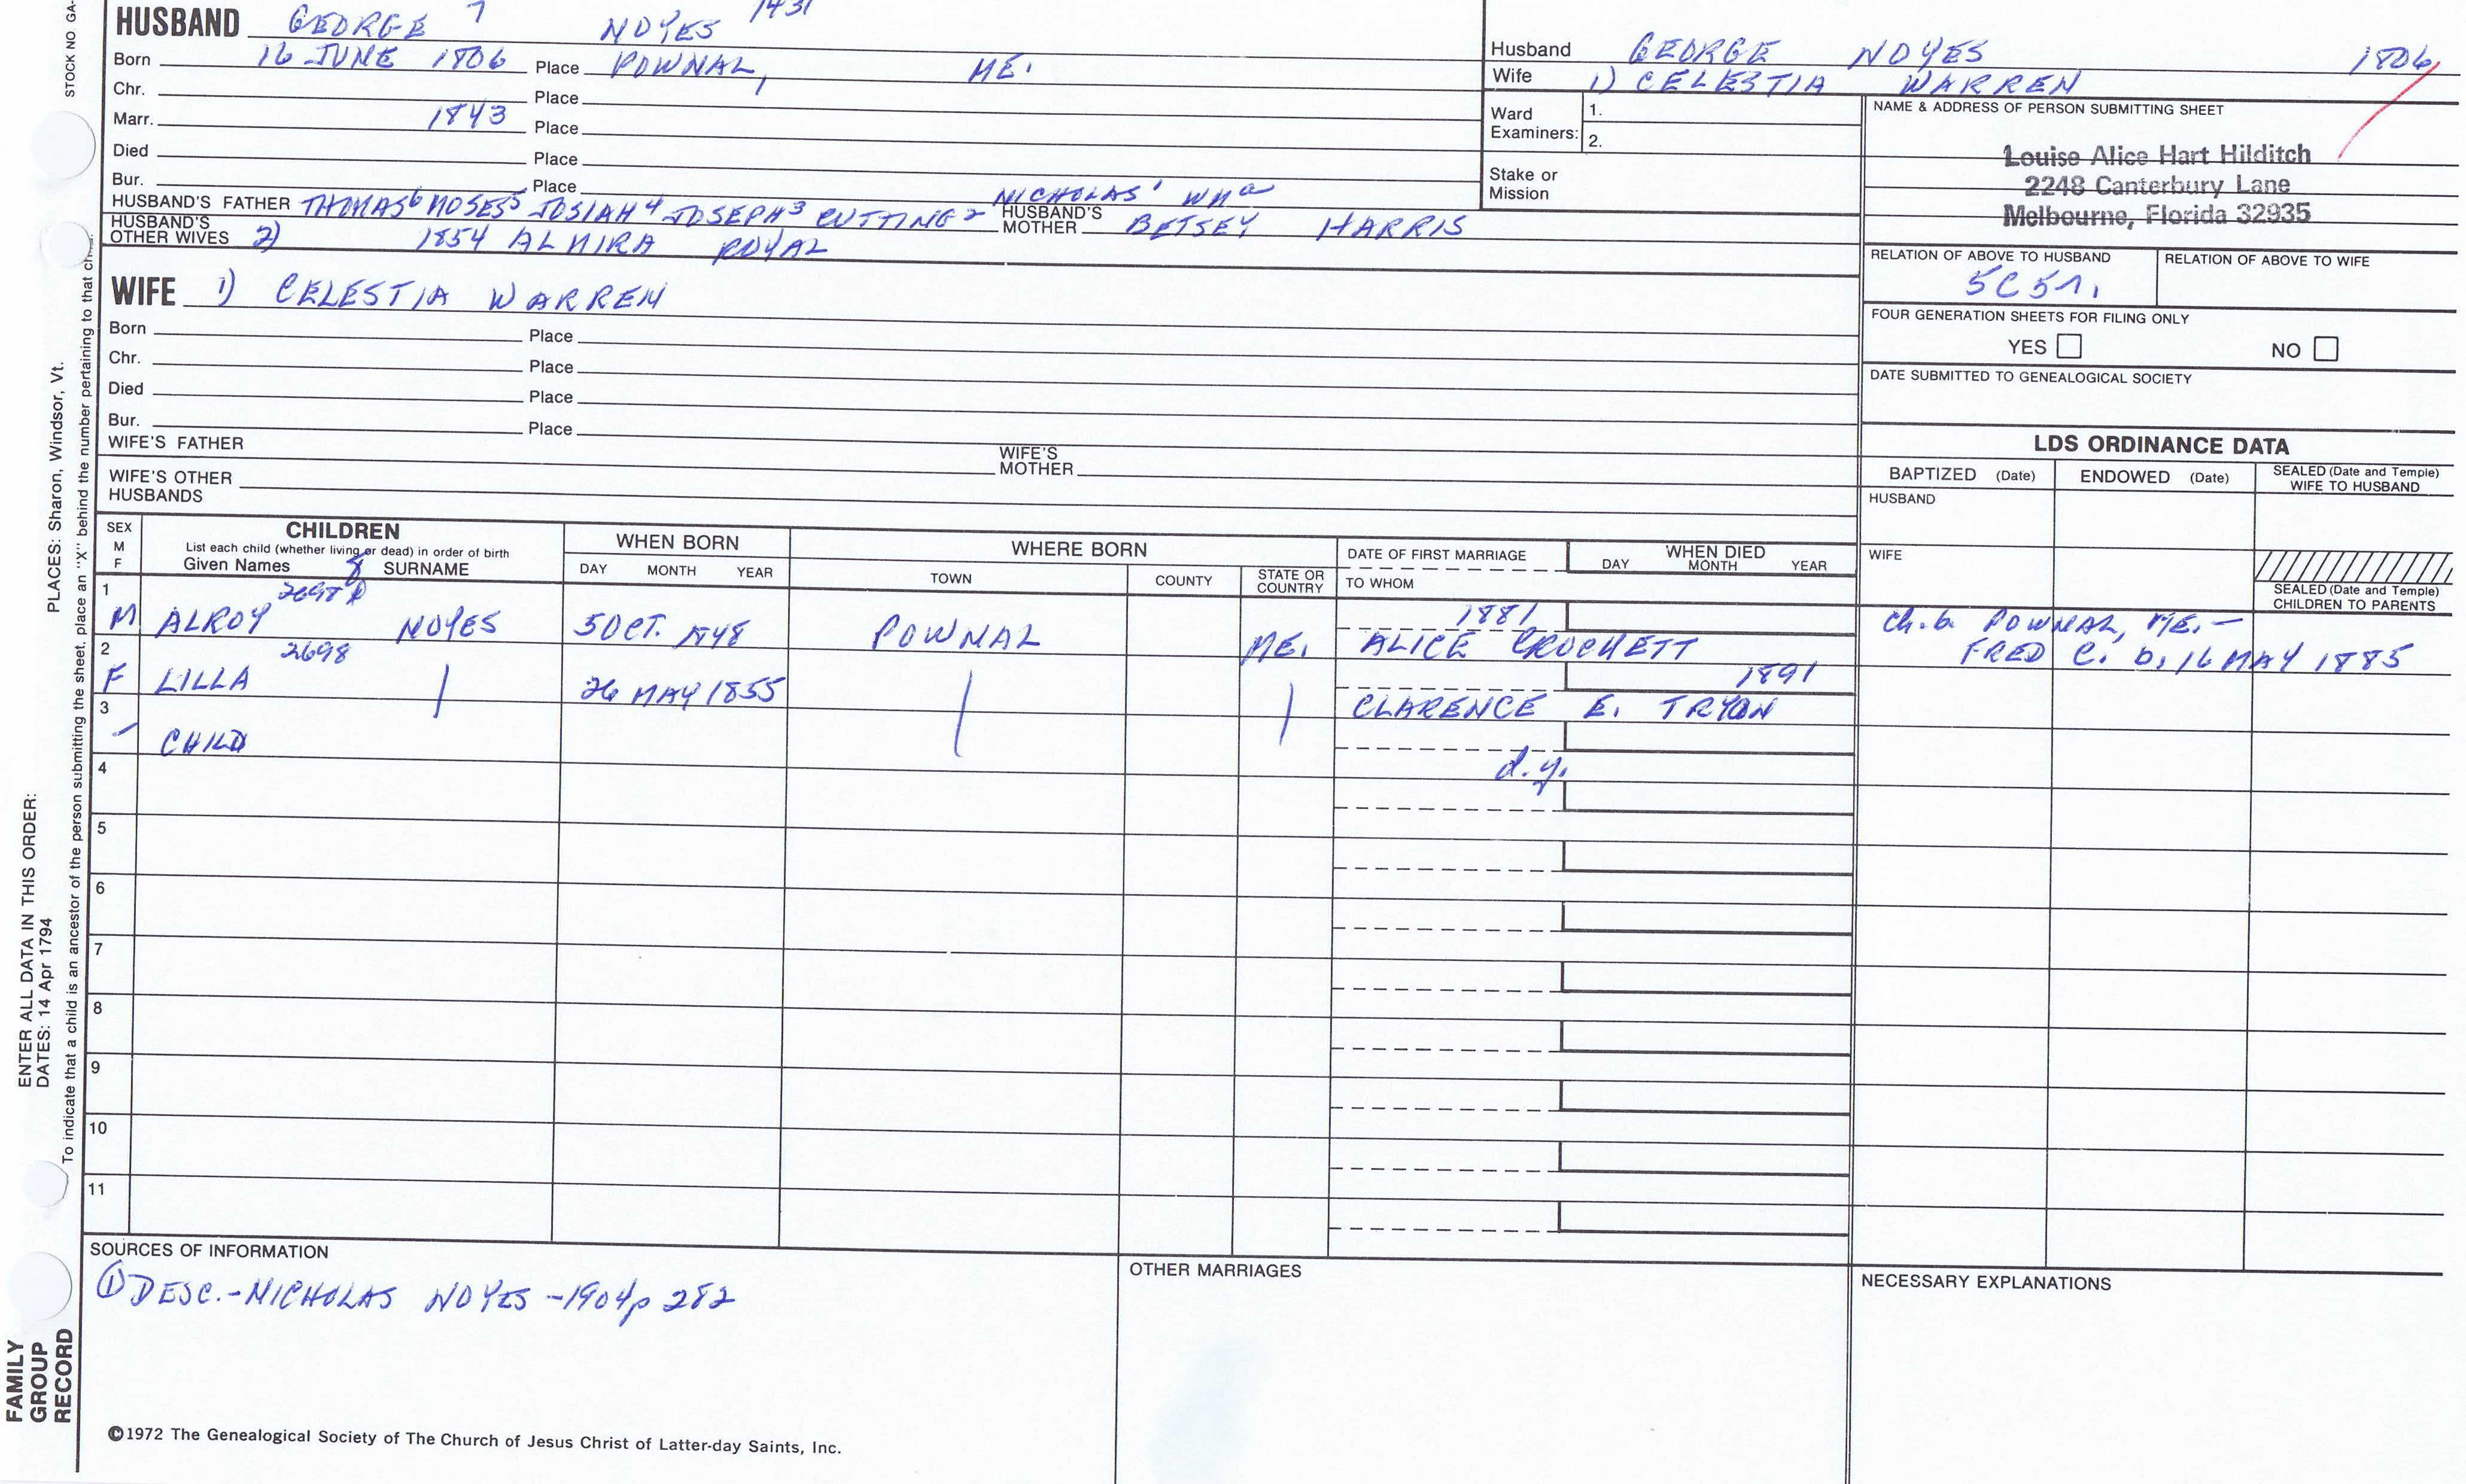 STOCK NO GA-
HUSBAND GEORGE 7 NOYES 1431
Born 16 JUNE 1806 Place POWNAL, ME.
Chr. Place
Marr. 1843 Place
Died Place
Bur. Place
HUSBAND'S FATHER THOMAS6 MOSES5 JOSIAH4 JOSEPH3 CUTTING2 NICHOLAS1 WMa HUSBAND'S MOTHER BETSEY HARRIS
HUSBAND'S OTHER WIVES 2) 1854 ALMIRA ROYAL
Husband GEORGE NOYES 1806
Wife 1) CELESTIA WARREN
Ward Examiners: 1.
2.
Stake or Mission
NAME & ADDRESS OF PERSON SUBMITTING SHEET
Louise Alice Hart Hilditch
2248 Canterbury Lane
Melbourne, Florida 32935
RELATION OF ABOVE TO HUSBAND RELATION OF ABOVE TO WIFE
FOUR GENERATION SHEETS FOR FILING ONLY
YES NO
DATE SUBMITTED TO GENEALOGICAL SOCIETY
WIFE 1) CELESTIA WARREN
Born Place
Chr. Place
Died Place
Bur. Place
WIFE'S FATHER WIFE'S MOTHER
WIFE'S OTHER HUSBANDS
LDS ORDINANCE DATA
BAPTIZED (Date) ENDOWED (Date) SEALED (Date and Temple) WIFE TO HUSBAND
HUSBAND
WIFE
SEALED (Date and Temple) CHILDREN TO PARENTS
SEX M F
CHILDREN
List each child (whether living or dead) in order of birth
Given Names SURNAME
WHEN BORN
DAY MONTH YEAR
WHERE BORN
TOWN COUNTY STATE OR COUNTRY
DATE OF FIRST MARRIAGE
TO WHOM
WHEN DIED
DAY MONTH YEAR
1 M ALROY 2697 8 NOYES 5 OCT. 1848 POWNAL ME. 1881 ALICE CROCKETT
Ch. b. POWNAL, ME. -
FRED C. b. 16 MAY 1885
2 F LILLA 2698 26 MAY 1855 1891 CLARENCE E. TRYON
3 - CHILD d.y.
4
5
6
7
8
9
10
11
SOURCES OF INFORMATION
① DESC.-NICHOLAS NOYES -1904 p 282
OTHER MARRIAGES
NECESSARY EXPLANATIONS
©1972 The Genealogical Society of The Church of Jesus Christ of Latter-day Saints, Inc.
ENTER ALL DATA IN THIS ORDER:
DATES: 14 Apr 1794 PLACES: Sharon, Windsor, Vt.
To indicate that a child is an ancestor of the person submitting the sheet, place an "X" behind the number pertaining to that
FAMILY
GROUP
RECORD